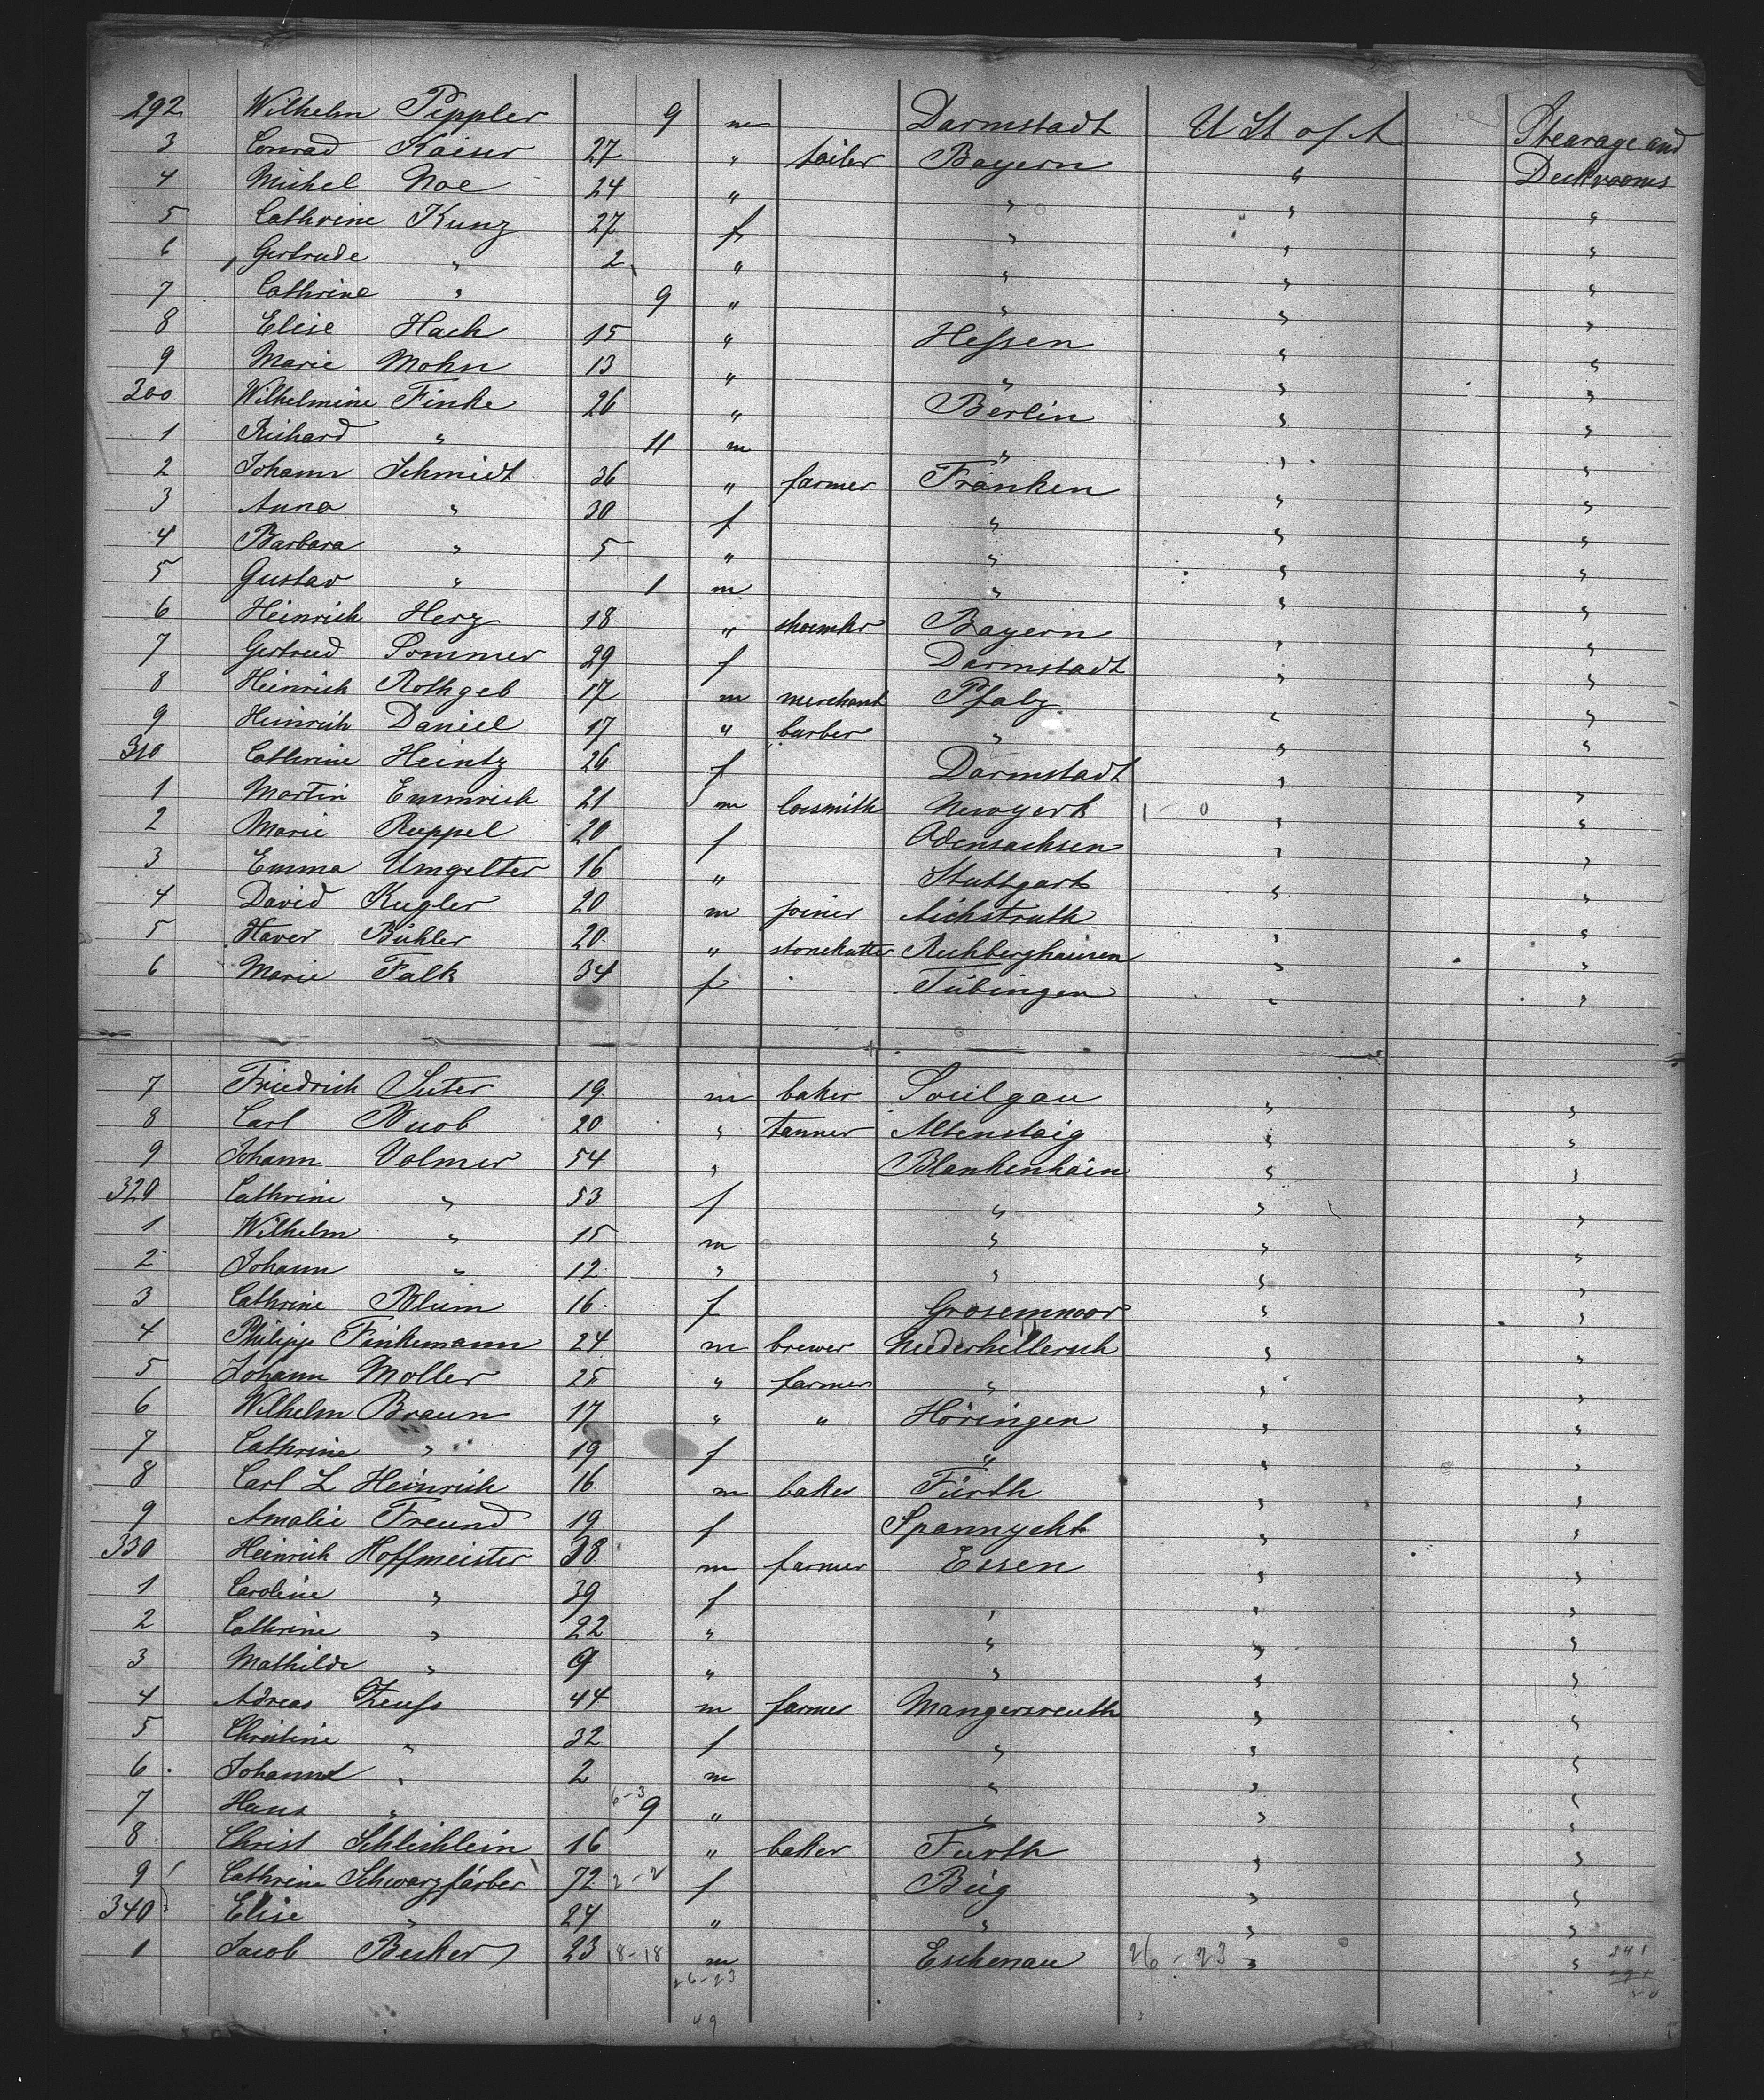 292 Wilhelm Peppler 9 m Darmstadt U St of A Stearage and
3 Conrad Kaiser 27 " tailer Bayern " Deckrooms
4 Michel Noe 24 " " " "
5 Cathrine Kunz 27 f " " "
6 Gertrude " 2 " " " "
7 Cathrine " 9 " " " "
8 Elise Hach 15 " Hessen " "
9 Marie Mohn 13 " " " "
300 Wilhelmine Finke 26 " Berlin " "
1 Richard " 11 m " " "
2 Johann Schmidt 36 " farmer Franken " "
3 Anna " 30 f " " "
4 Barbara " 5 " " " "
5 Gustav " 1 m " " "
6 Heinrich Herz 18 " shoemkr Bayern " "
7 Gertrud Sommer 29 f Darmstadt " "
8 Heinrich Rothgeb 17 m merchant Pfalz " "
9 Heinrich Daniel 17 " barber " " "
310 Catherine Heintz 26 f Darmstadt " "
1 Martin Emmrich 21 m locsmith Newyork 1 - 0 " "
2 Marie Ruppel 20 f Odensachsen " "
3 Emma Umgelter 16 " Stuttgart " "
4 David Kugler 20 m joiner Aichstruth " "
5 Xaver Bühler 20 " stonekutter Rechberghausen " "
6 Marie Falk 34 f Tübingen " "
7 Friedrich Suter 19 m baker Soulgau " "
8 Carl Buob 20 " tanner Altenstaig " "
9 Johann Volmer 54 " Blankenhain " "
320 Cathrine " 53 f " " "
1 Wilhelm " 15 m " " "
2 Johann " 12 " " " "
3 Cathrine Blum 16 f Grosemnoor " "
4 Philipp Finkemann 24 m brewer Niederhellersch " "
5 Johann Moller 25 " farmer " " "
6 Wilhelm Braun 17 " " Höringen " "
7 Cathrine " 19 f " " "
8 Carl L Heinrich 16 m baker Fürth " "
9 Amalie Freund 19 f Spannycht " "
330 Heinrich Hoffmeister 38 m farmer Essen " "
1 Caroline " 39 f " " "
2 Cathrine " 22 " " " "
3 Mathilde " 9 " " " "
4 Adreas Zeuss 44 m farmer Mangersreuth " "
5 Christine " 32 f " " "
6 Johann " 2 m " " "
7 Hans " 6-3 9 " " " "
8 Christ Schleihlein 16 " baker Furth " "
9 Cathrine Schwarzfärber 72 2-2 f Büg " "
340 Elise " 24 " " " "
1 Jacob Becker 23 18-18 m Eschenau 26-23 " " 341
26-23
49